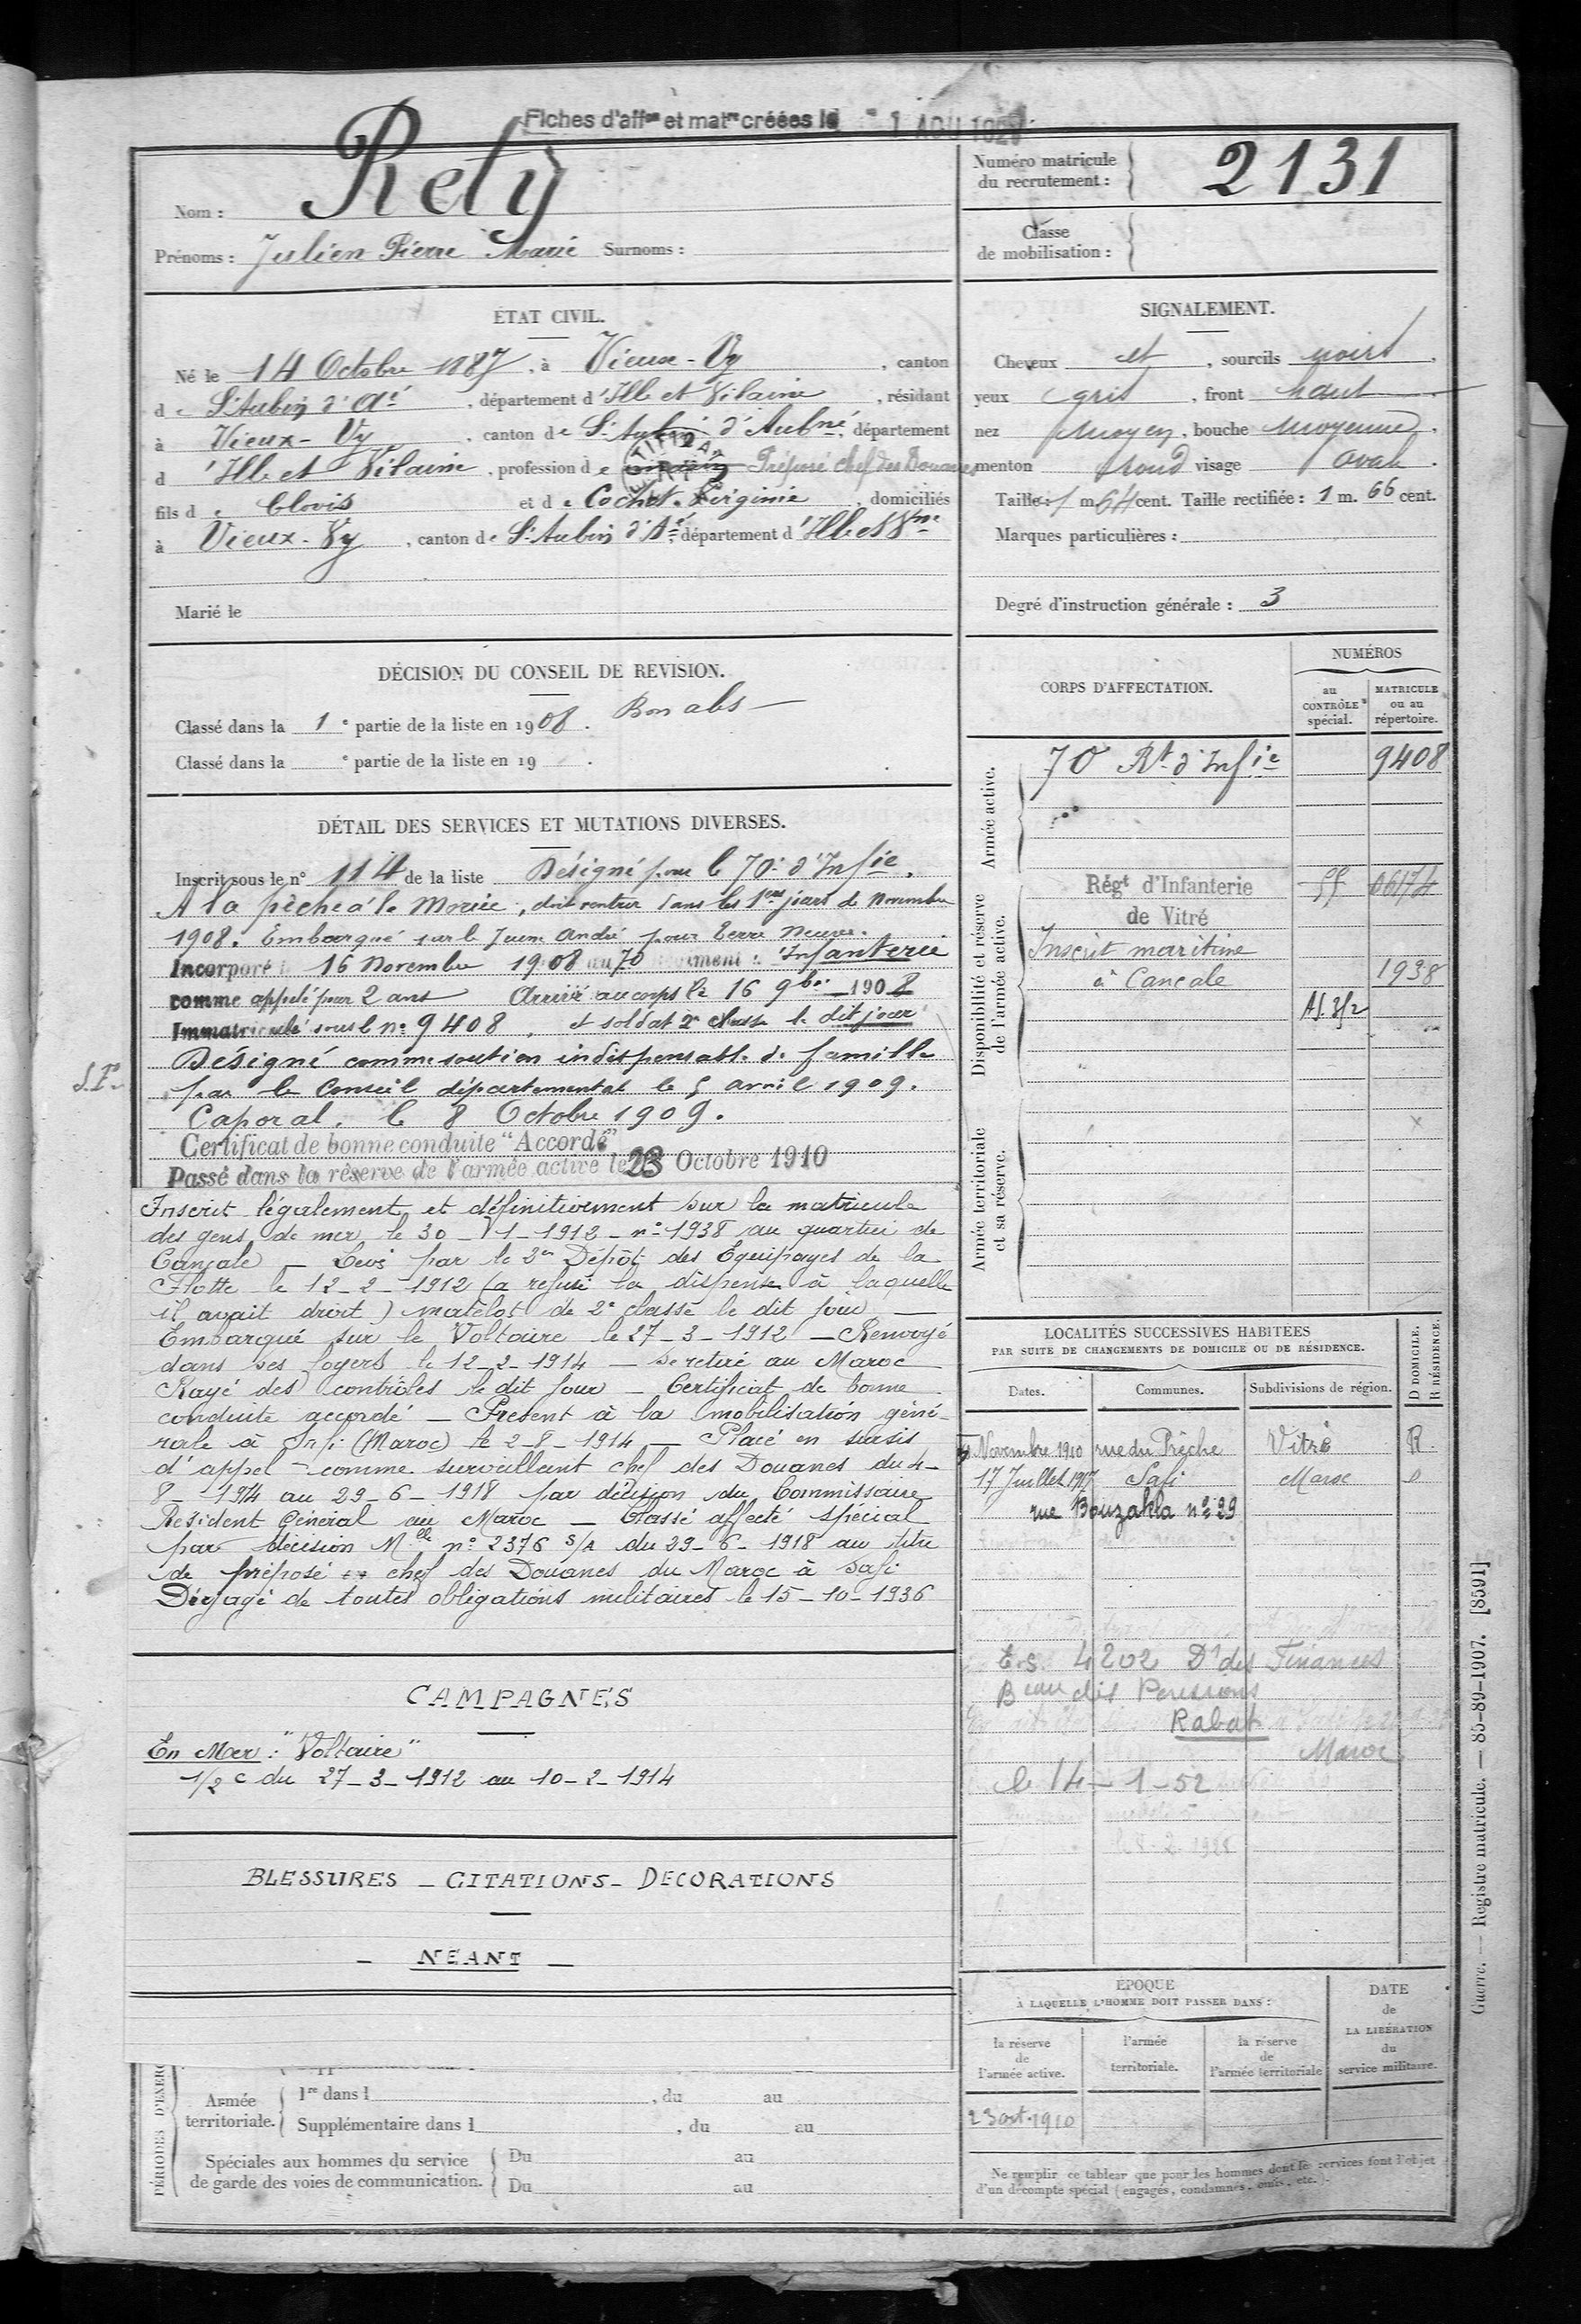 Fiches d'aff<sup>on</sup> et mat<sup>re</sup> créées le 1 AOU 192
Nom : Rety
Prénoms : Julien Pierre Marie Surnoms :
Numéro matricule du recrutement : 2131
Classe de mobilisation :
ÉTAT CIVIL.
Né le 14 Octobre 1887, à Vieux-Vy, canton
de St Aubin d'Aé, département d'Ille et Vilaine, résidant
à Vieux-Vy, canton de St Aubin d'Aubné, département
d'Ille et Vilaine, profession de Préposé chef des Douanes
fils de Clovis et de Cochet Virginie, domiciliés
à Vieux-Vy, canton de St Aubin d'Aé, département d'Ille et Vne
Marié le
SIGNALEMENT.
Cheveux et, sourcils noirs.
yeux gris, front haut
nez moyen, bouche moyenne.
menton rond visage ovale.
Taille : 1 m 64 cent. Taille rectifiée : 1 m. 66 cent.
Marques particulières :
Degré d'instruction générale : 3
DÉCISION DU CONSEIL DE REVISION.
Classé dans la 1e partie de la liste en 1908. Bon abs
Classé dans la e partie de la liste en 19 .
DÉTAIL DES SERVICES ET MUTATIONS DIVERSES.
Inscrit sous le n° 114 de la liste Désigné pour le 70e d'Infie.
A la pêche à la Morue, doit rentrer dans les 1ers jours de novembre
1908. Embarqué sur le Jeune André pour Terre Neuve.
Incorporé le 16 Novembre 1908 au 70 Régiment d'Infanterie
comme appelé pour 2 ans Arrivé au corps le 16 9bre 1908
Immatriculé sous le n° 9408, et soldat 2e classe le dit jour
Désigné comme soutien indispensable de famille
par le Conseil départemental le 5 avril 1909.
Caporal, le 8 Octobre 1909.
Certificat de bonne conduite "Accordé"
Passé dans la réserve de l'armée active le 23 Octobre 1910
Inscrit légalement et définitivement sur la matricule
des gens de mer le 30-V1-1912-n° 1938 au quartier de
Cancale — Levé par le 2e Dépôt des Equipages de la
Flotte le 12-2-1912 (a refusé la dispense à laquelle
il avait droit) matelot de 2e classe le dit jour —
Embarqué sur le Voltaire le 27-3-1912 — Renvoyé
dans ses foyers le 12-2-1914 — se retire au Maroc
Rayé des contrôles le dit jour — Certificat de bonne
conduite accordé — Présent à la mobilisation géné-
rale à Safi (Maroc) le 2-8-1914 — Placé en sursis
d'appel comme surveillant chef des Douanes du 4-
8-1914 au 29-6-1918 par décision du Commissaire
Resident Général au Maroc — Classé affecté spécial
par décision Melle n° 2376 S/A du 29-6-1918 au titre
de préposé chef des Douanes du Maroc à Safi
Dégagé de toutes obligations militaires le 15-10-1936
CAMPAGNES
En Mer : "Voltaire"
1/2 c du 27-3-1912 au 10-2-1914
BLESSURES — CITATIONS — DECORATIONS
— NEANT —
PÉRIODES D'EXERC
Armée territoriale.
1re dans l , du au
Supplémentaire dans l , du au
Spéciales aux hommes du service
de garde des voies de communication.
Du au
Du au
CORPS D'AFFECTATION.
NUMÉROS
au CONTRÔLE spécial.
MATRICULE ou au répertoire.
Armée active.
70 Rt d'Infie 9408
Disponibilité et réserve de l'armée active.
Régt d'Infanterie 06174
de Vitré
Inscrit maritime
à Cancale 1938
Armée territoriale et sa réserve.
LOCALITÉS SUCCESSIVES HABITÉES
PAR SUITE DE CHANGEMENTS DE DOMICILE OU DE RÉSIDENCE.
Dates. Communes. Subdivisions de région. D DOMICILE. R RÉSIDENCE.
Novembre 1910 rue du Prêche Vitré R.
17 Juillet 1917 Safi Maroc
rue Bouzahla n° 29
E.S. 4202 Don des Finances
Beau des Pensions
Rabat
Maroc
le 14-1-52
le 8-2-1928
ÉPOQUE
À LAQUELLE L'HOMME DOIT PASSER DANS :
la réserve de l'armée active.
l'armée territoriale.
la réserve de l'armée territoriale
DATE de LA LIBÉRATION du service militaire.
23 oct. 1910
Ne remplir ce tableau que pour les hommes dont les services font l'objet
d'un décompte spécial (engagés, condamnés, omis, etc.).
Guerre. — Registre matricule. — 85-89-1907. [8591]